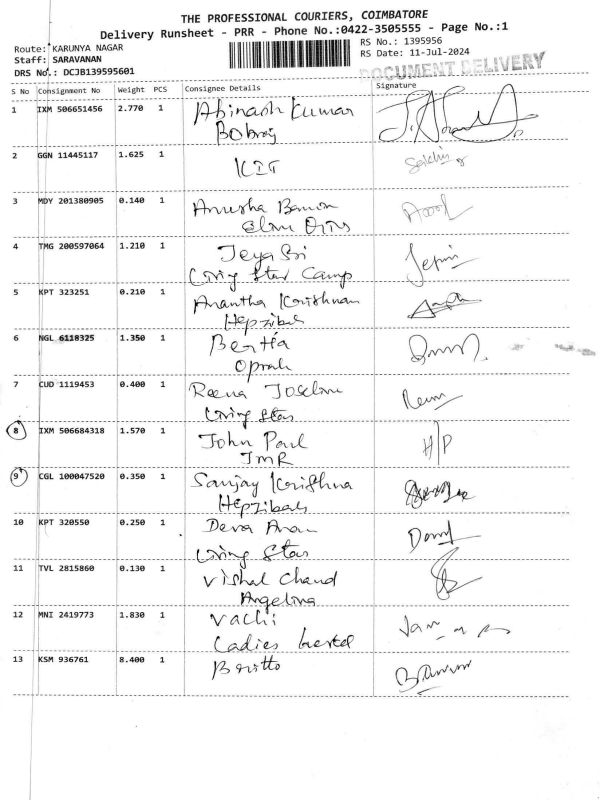 THE PROFESSIONAL COURIERS, COIMBATORE
Delivery Runsheet - PRR - Phone No.:0422-3505555 - Page No.:1
Route: KARUNYA NAGAR
RS No.: 1395956
Staff: SARAVANAN
RS Date: 11-Jul-2024
DRS No.: DCJB139595601
DOCUMENT DELIVERY
S No Consignment No Weight PCS Consignee Details Signature
1 IXM 506651456 2.770 1 Abinash Kumar
Bobraj
2 GGN 11445117 1.625 1 KIT
3 MDY 201380905 0.140 1 Anusha
4 TMG 200597064 1.210 1 Jeya Sri
Living Star Camp
5 KPT 323251 0.210 1 Anantha Krishnan
Hepzibah
6 NGL 6118325 1.350 1
Oprah
7 CUD 1119453 0.400 1 Reena
Living Star
8 IXM 506684318 1.570 1 John Paul H/P
JMR
9 CGL 100047520 0.350 1 Sanjay Krishna
Hepzibah
10 KPT 320550 0.250 1 Deva
Living Star
11 TVL 2815860 0.130 1 Vishal Chand
Angelina
12 MNI 2419773 1.830 1 Vachi
Ladies hostel
13 KSM 936761 8.400 1 Britto